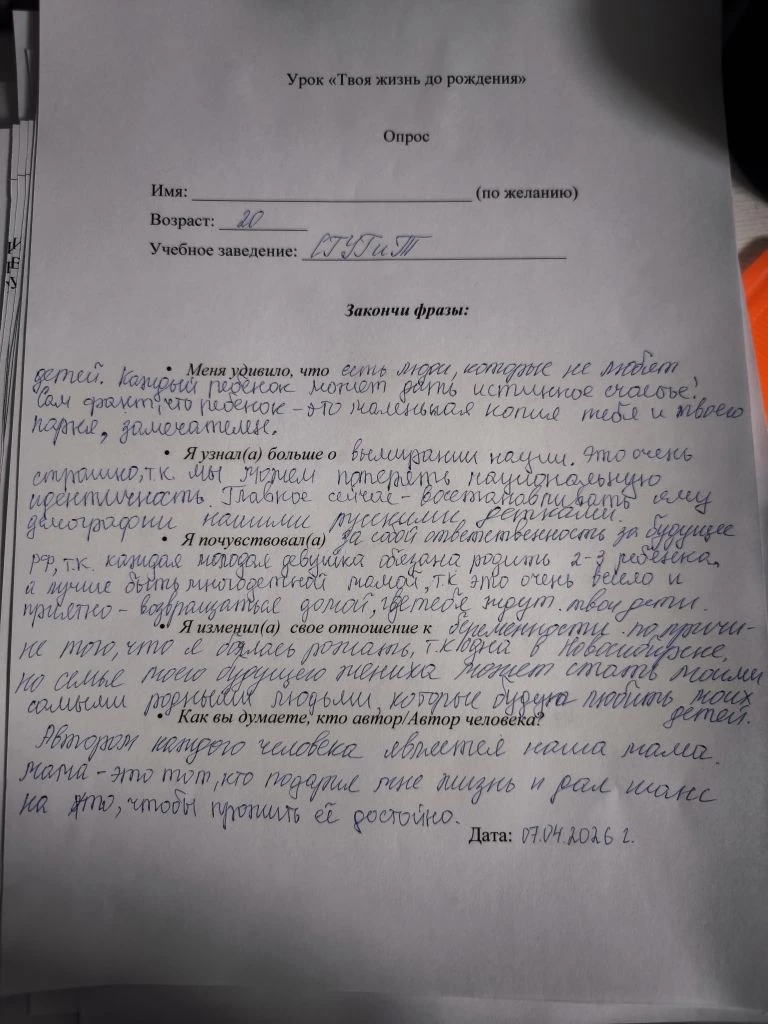 Урок «Твоя жизнь до рождения»
Опрос
Имя: (по желанию)
Возраст: 20
Учебное заведение: СГУГиТ
Закончи фразы:
• Меня удивило, что есть люди, которые не любят
детей. Каждый ребёнок может дать истинное счастье!
Сам факт, что ребёнок - это маленькая копия тебя и твоего
парня, замечателен.
• Я узнал(а) больше о вымирании нации. Это очень
страшно, т.к. мы можем потерять национальную
идентичность. Главное сейчас - восстанавливать яму
демографии нашими русскими детками.
• Я почувствовал(а) за собой ответственность за будущее
РФ, т.к. каждая молодая девушка обязана родить 2-3 ребёнка,
а лучше быть многодетной мамой, т.к. это очень весело и
приятно - возвращаться домой, где тебя ждут твои дети.
• Я изменил(а) свое отношение к беременности по причи-
не того, что я боялась рожать, т.к. одна в Новосибирске,
но семья моего будущего жениха может стать моими
самыми родными людьми, которые будут любить моих
детей.
• Как вы думаете, кто автор/Автор человека?
Автором каждого человека является наша мама.
Мама - это тот, кто подарил мне жизнь и дал шанс
на то, чтобы прожить её достойно.
Дата: 07.04.2026 г.